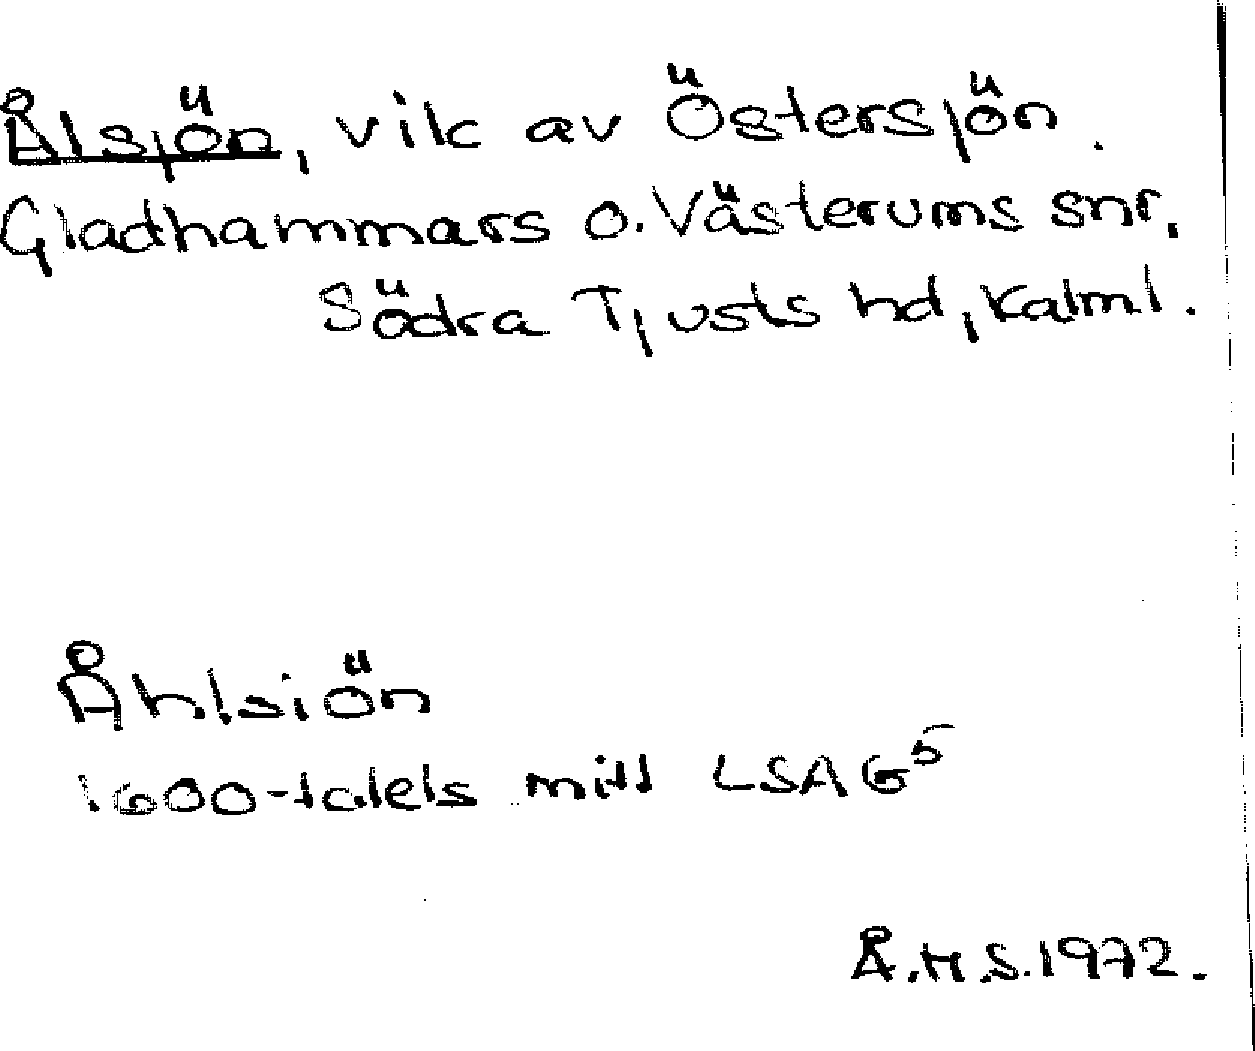 Ålsjön, vik av Östersjön.
Gladhammars o. Västerums snr,
Södra Tjusts hd, Kalml.
Åhlsiön
1600-talets mitt LSA G⁵
Å.H.S. 1972.